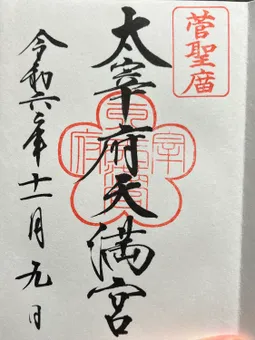 菅聖庿
太宰府天満宮
宰
府
令和六年十一月九日